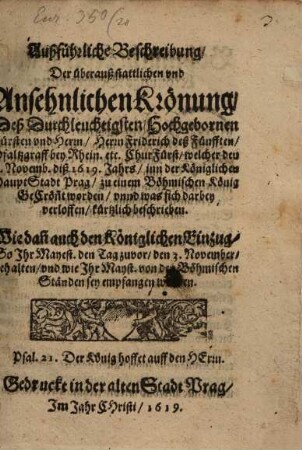 Eur. 350/20
Außführliche Beschreibung/
Der überauß stattlichen vnd
Ansehnlichen Krönung/
Deß Durchleuchtigsten/ Hochgebornen
Fürsten vnd Herrn/ Herrn Friderich deß Fünfften/
Pfaltzgraff bey Rhein. etc. ChurFürst/ welcher den
4. Novemb. diß 1619. Jahrs/ inn der Königlichen
HauptStadt Prag/ zu einem Böhmischen König
GeCrönt worden/ vnnd was sich darbey
verloffen/ kürtzlich beschrieben.
Wie dañ auch den Königlichen Einzug/
So Ihr Mayest. den Tag zuvor/ den 3. November/
gehalten/ vnd wie Ihr Mayst. von den Böhmischen
Ständen sey empfangen worden.
Psal. 21. Der König hoffet auff den HErrn.
Gedruckt in der alten Stadt Prag/
Im Jahr CHristi/ 1619.